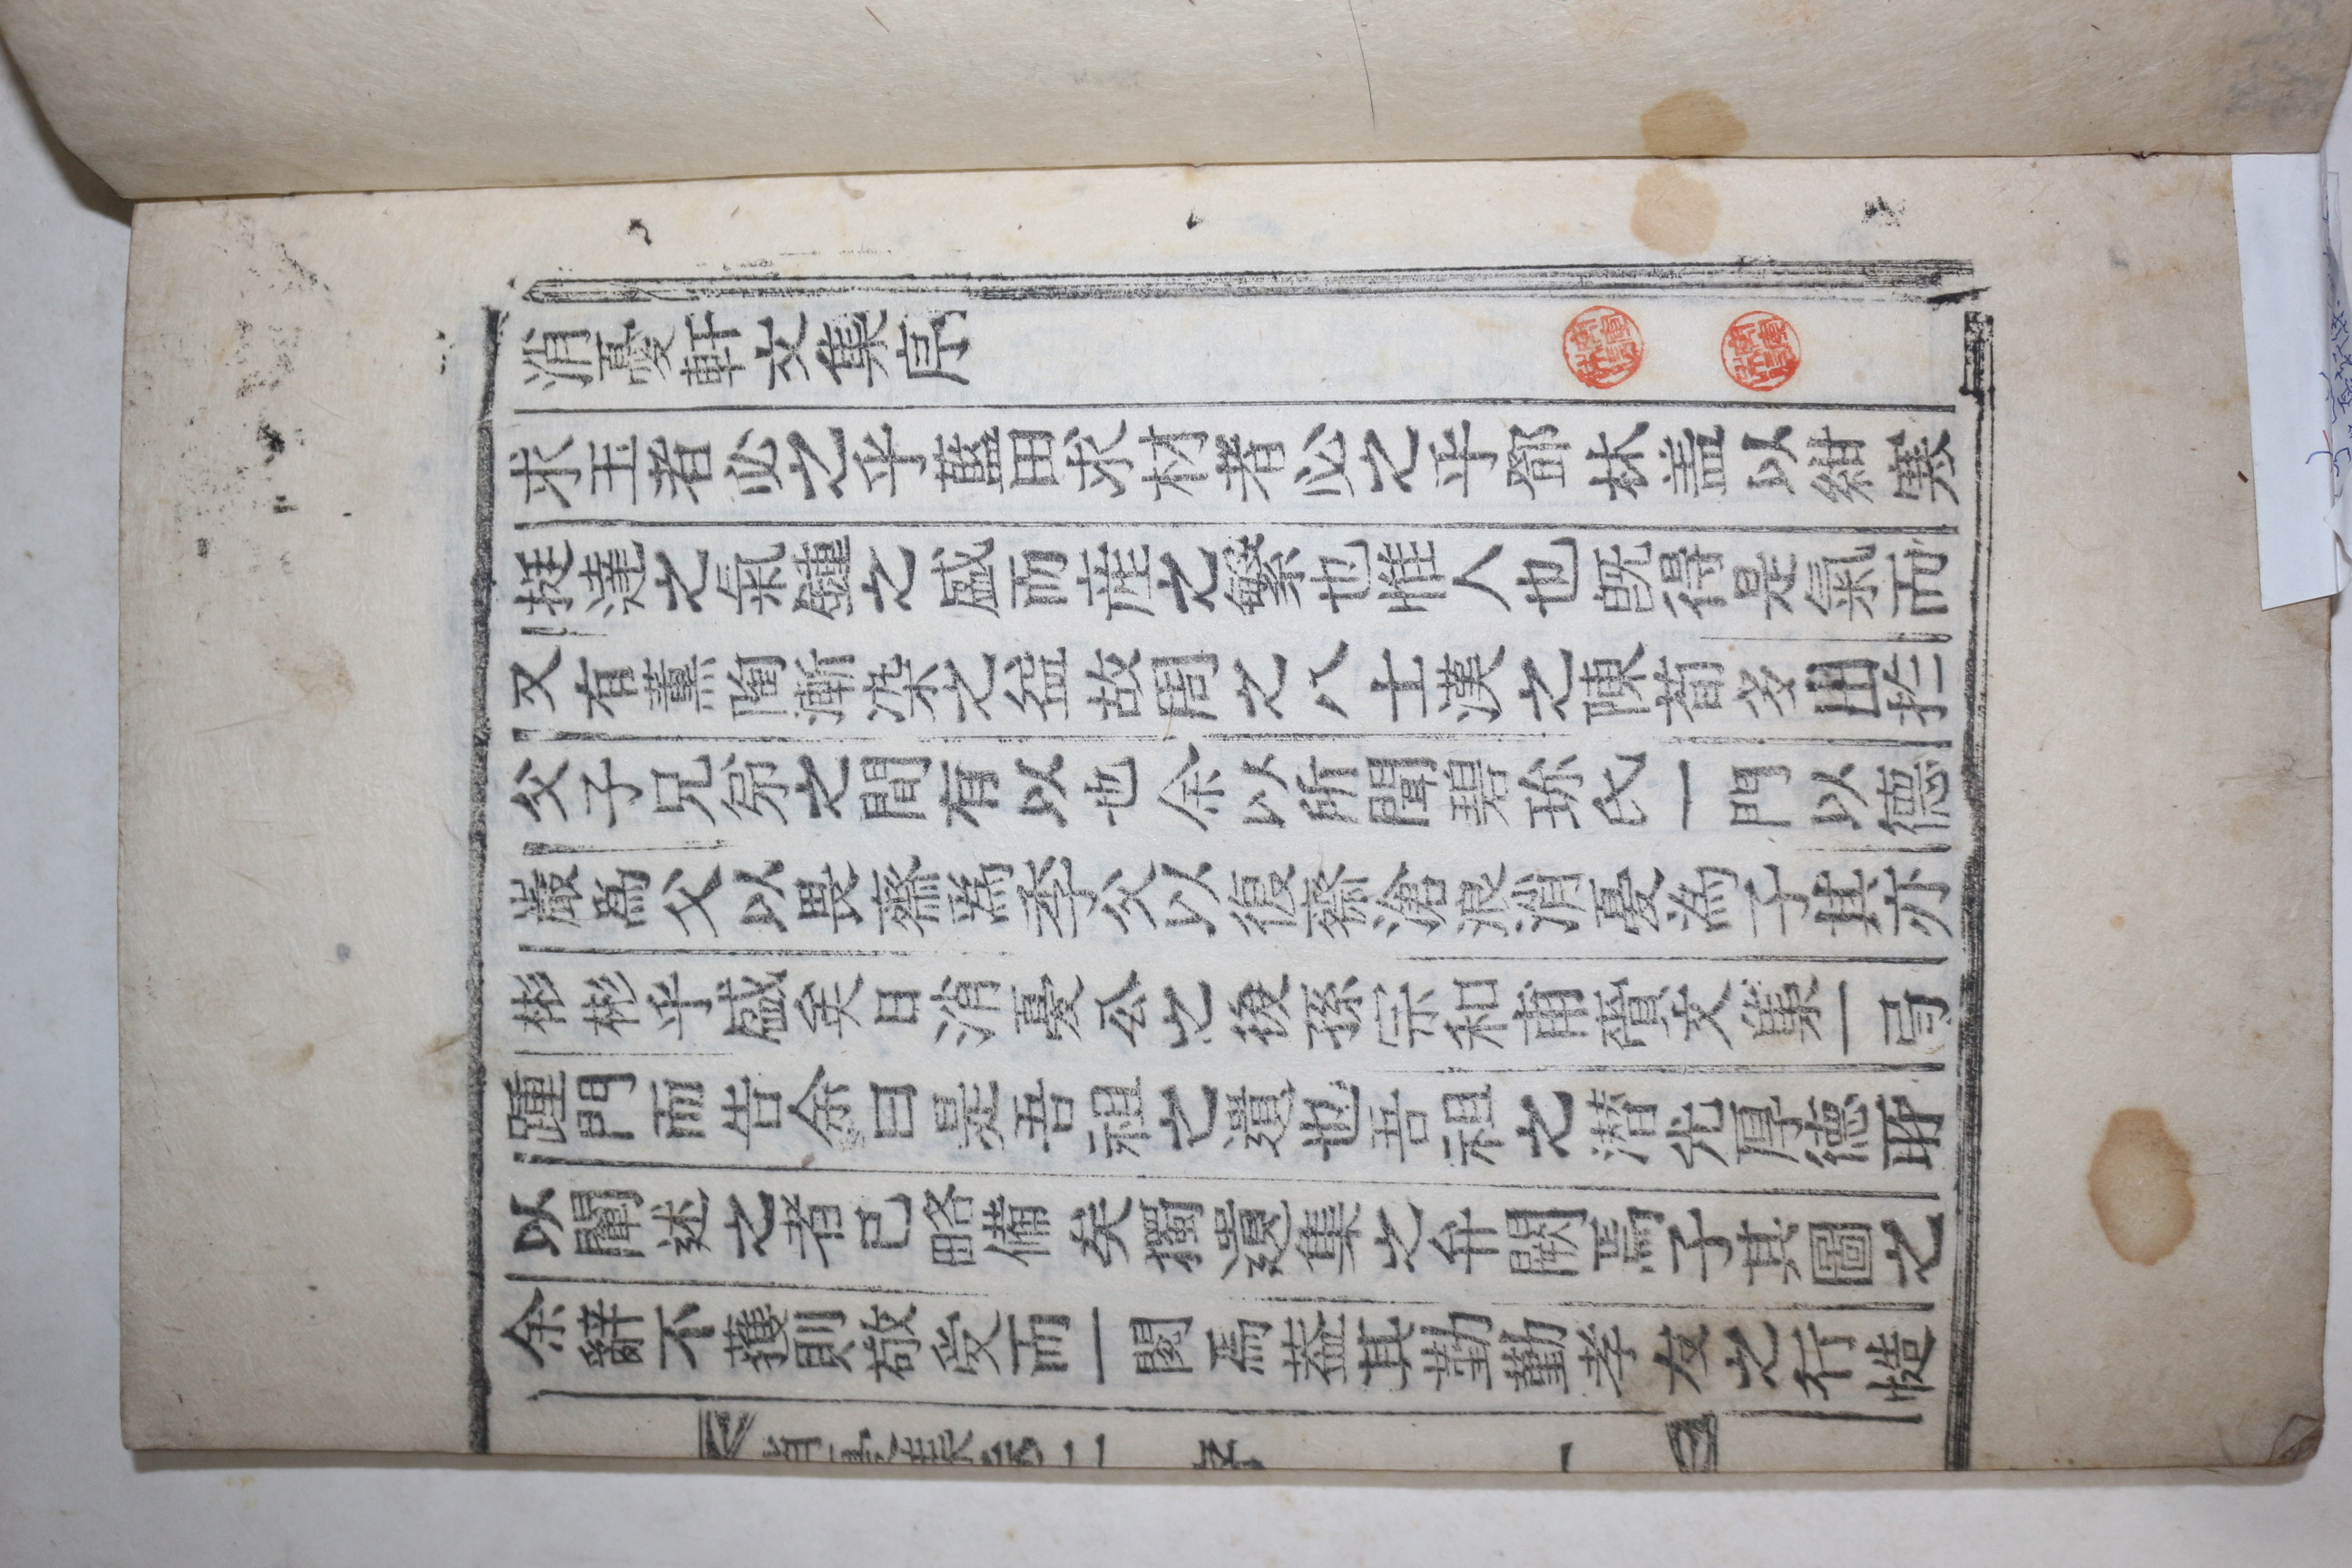 消憂軒文集序
求玉者必之乎藍田求材者必之乎鄧林盖以紺寒
挺達之氣鍾之盛而産之繁也惟人也旣得是氣而
又有薰陶漸染之益故周之八士漢之陳荀多出扵
父子兄弟之間有以也余以所聞碧珎氏一門以德
巖爲父以畏齋爲季父以復齋滄浪消憂為子其亦
彬彬乎盛矣日消憂公之後孫宗和甫賷文集一弓
踵門而告余曰是吾祖之遺也吾祖之潜光厚德所
以闡述之者已略備矣獨遺集之弁闕焉子其圖之
余辭不獲則敬受而一閱焉葢其勤勤孝友之行慥